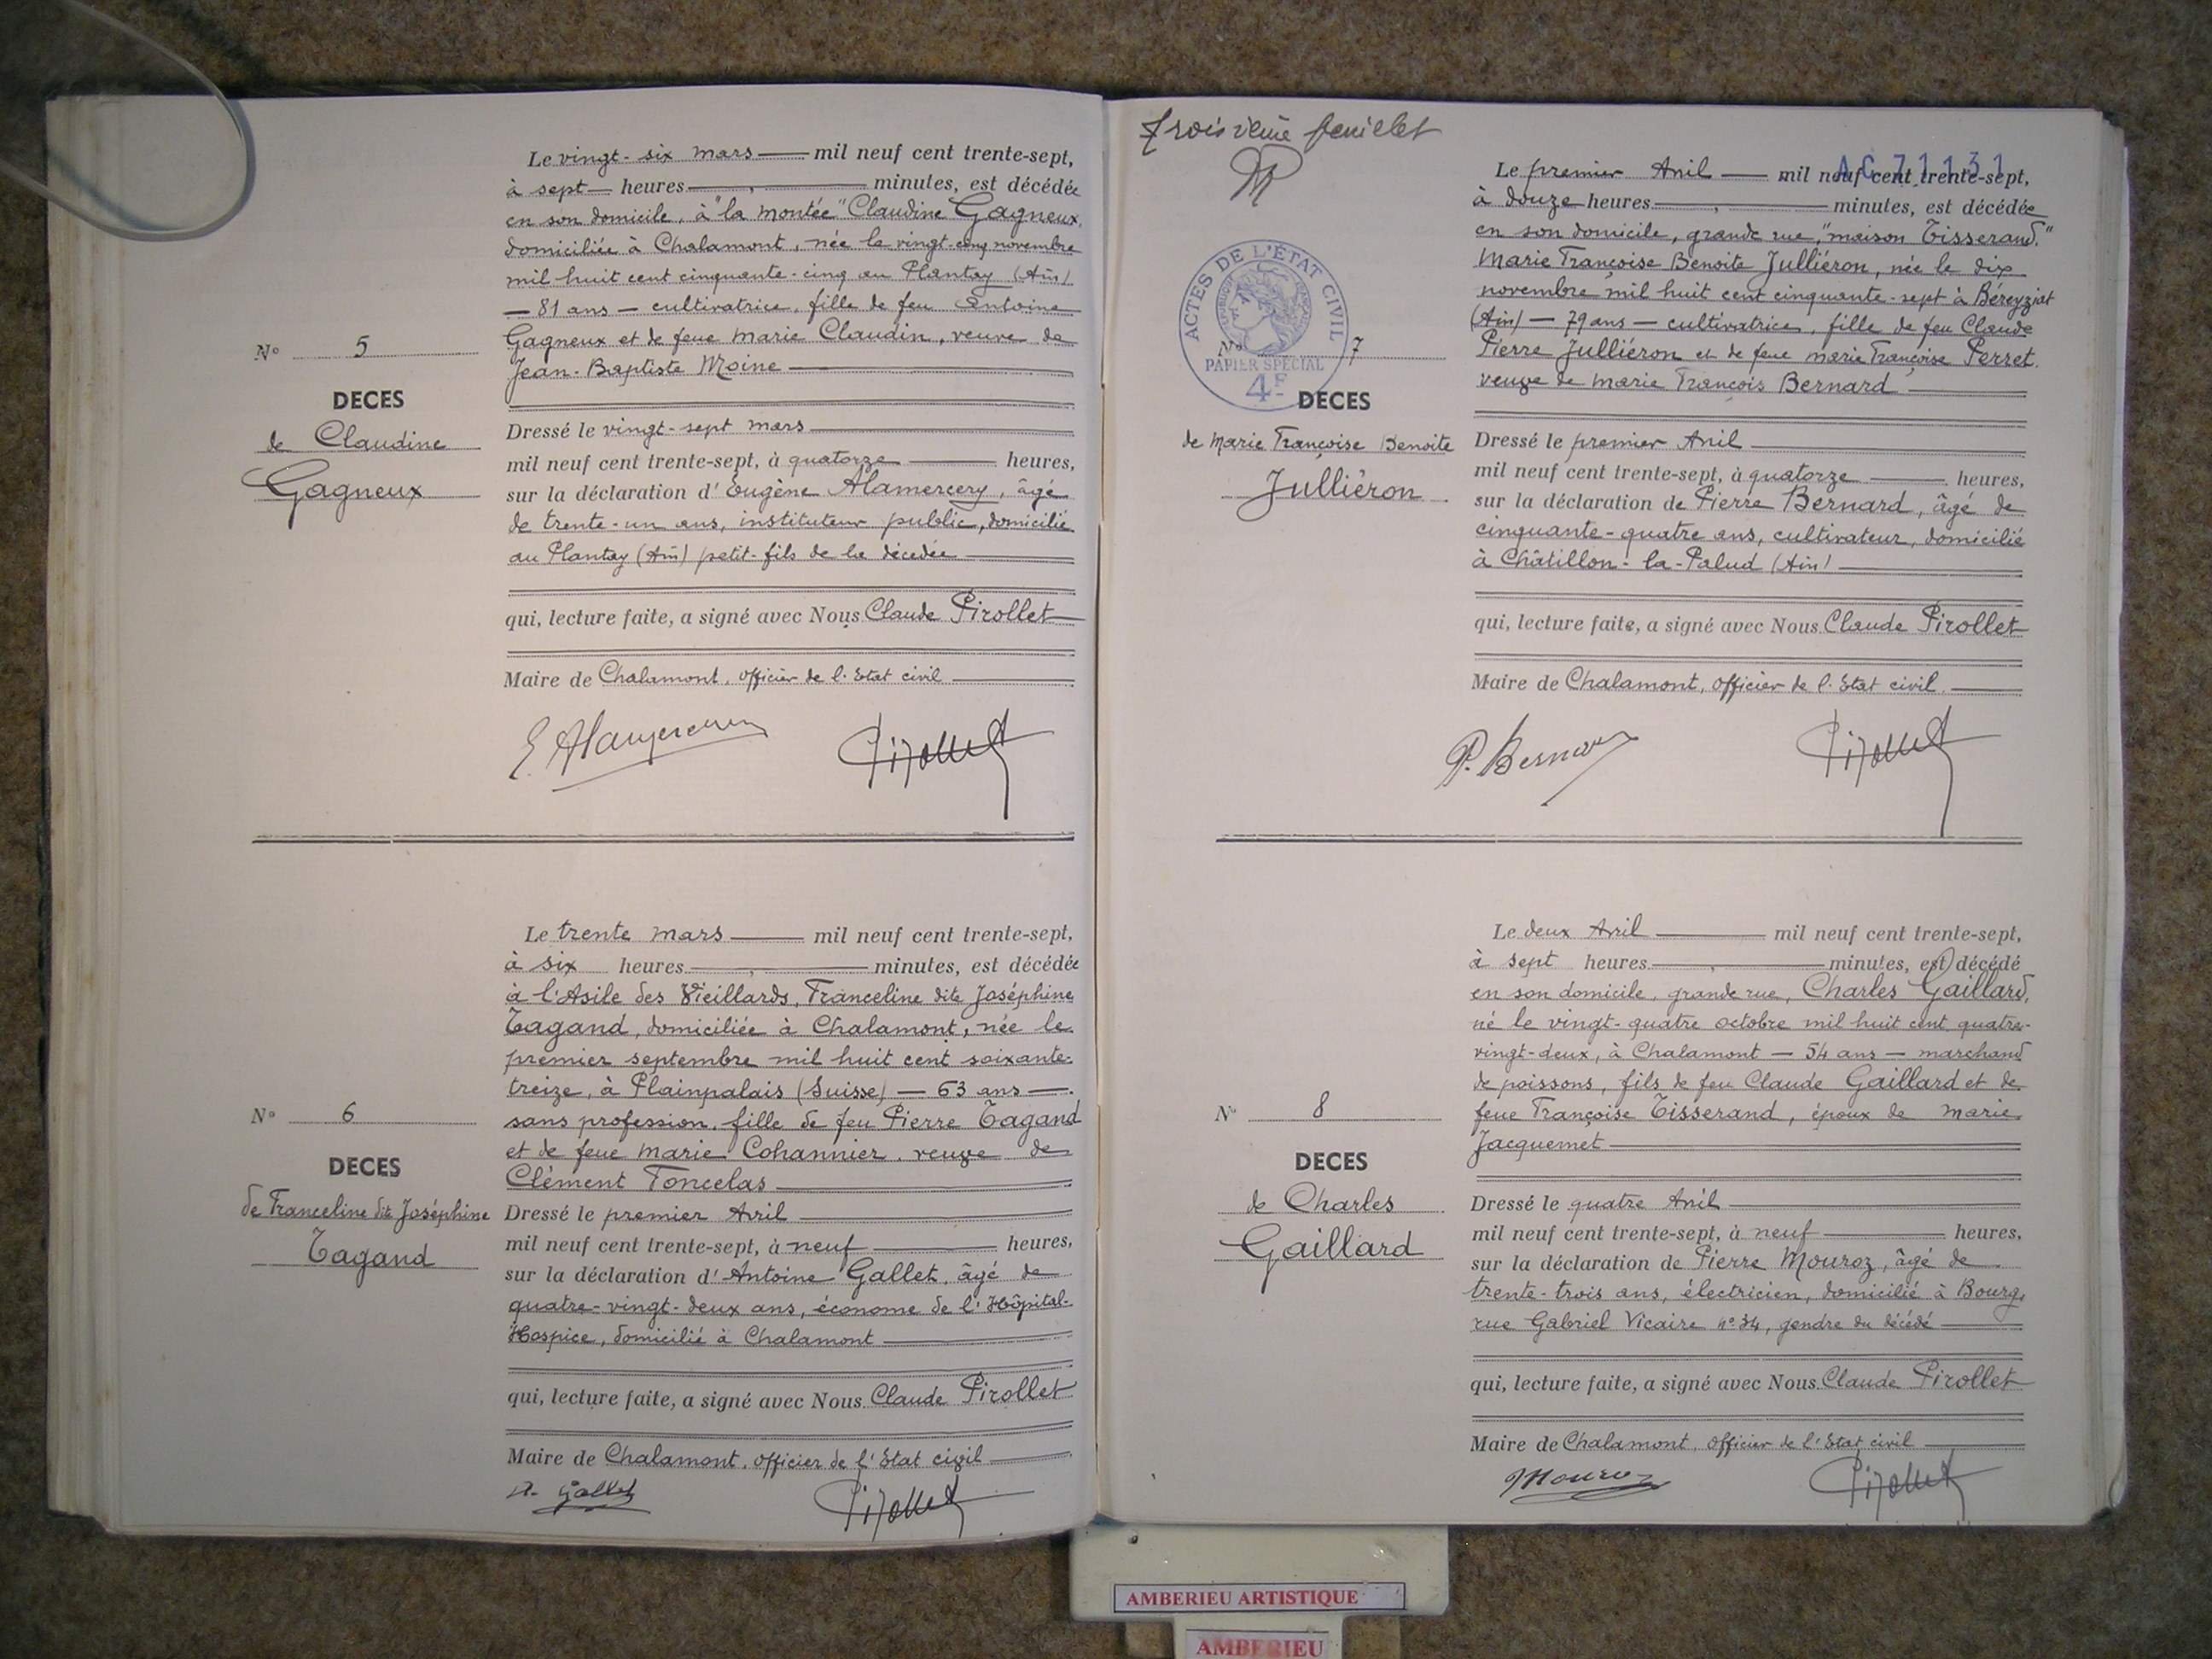 Le vingt-six mars mil neuf cent trente-sept,
à sept heures minutes, est décédée
en son domicile, à "la montée" Claudine Gagneux,
domiciliée à Chalamont, née le vingt-cinq novembre
mil huit cent cinquante-cinq au Plantay (Ain)
— 81 ans — cultivatrice, fille de feu Antoine
Gagneux et de feue marie Claudin, veuve de
Jean-Baptiste Moine
N° 5
DECES
de Claudine
Gagneux
Dressé le vingt-sept mars
mil neuf cent trente-sept, à quatorze heures,
sur la déclaration d'Eugène Alamercery, âgé
de trente-un ans, instituteur public, domicilié
au Plantay (Ain) petit-fils de la décédée
qui, lecture faite, a signé avec Nous Claude Pirollet
Maire de Chalamont, officier de l'Etat civil
E. Alamercery Pirollet
Le trente mars mil neuf cent trente-sept,
à six heures minutes, est décédée
à l'Asile des Vieillards, Franceline dite Joséphine
Tagand, domiciliée à Chalamont, née le
premier septembre mil huit cent soixante-
treize, à Plainpalais (Suisse) — 63 ans —
sans profession, fille de feu Pierre Tagand
et de feue marie Cohannier, veuve de
Clément Foncelas
N° 6
DECES
de Franceline dite Joséphine
Tagand
Dressé le premier Avril
mil neuf cent trente-sept, à neuf heures,
sur la déclaration d'Antoine Gallet, âgé de
quatre-vingt-deux ans, économe de l'Hôpital-
Hospice, domicilié à Chalamont
qui, lecture faite, a signé avec Nous Claude Pirollet
Maire de Chalamont, officier de l'Etat civil
A. Gallet Pirollet
feuillet
AC 71131
ACTES DE L'ÉTAT CIVIL
PAPIER SPÉCIAL
4F
Le premier Avril mil neuf cent trente-sept,
à douze heures minutes, est décédée
en son domicile, grande rue, "maison Tisserand."
Marie Françoise Benoite Julliéron, née le dix
novembre mil huit cent cinquante-sept à Béreyziat
(Ain) — 79 ans — cultivatrice, fille de feu Claude
Pierre Julliéron et de feue marie Françoise Perret,
veuve de marie François Bernard
N° 7
DECES
de Marie Françoise Benoite
Julliéron
Dressé le premier Avril
mil neuf cent trente-sept, à quatorze heures,
sur la déclaration de Pierre Bernard, âgé de
cinquante-quatre ans, cultivateur, domicilié
à Châtillon-la-Palud (Ain)
qui, lecture faite, a signé avec Nous Claude Pirollet
Maire de Chalamont, officier de l'Etat civil
P. Bernard Pirollet
Le deux Avril mil neuf cent trente-sept,
à sept heures minutes, est décédé
en son domicile, grande rue, Charles Gaillard,
né le vingt-quatre octobre mil huit cent quatre-
vingt-deux, à Chalamont — 54 ans — marchand
de poissons, fils de feu Claude Gaillard et de
feue Françoise Tisserand, époux de marie
Jacquemet
N° 8
DECES
de Charles
Gaillard
Dressé le quatre Avril
mil neuf cent trente-sept, à neuf heures,
sur la déclaration de Pierre Mouroz, âgé de
trente-trois ans, électricien, domicilié à Bourg,
rue Gabriel Vicaire n°34, gendre du décédé
qui, lecture faite, a signé avec Nous Claude Pirollet
Maire de Chalamont, officier de l'Etat civil
Mouroz Pirollet
AMBERIEU ARTISTIQUE
AMBERIEU